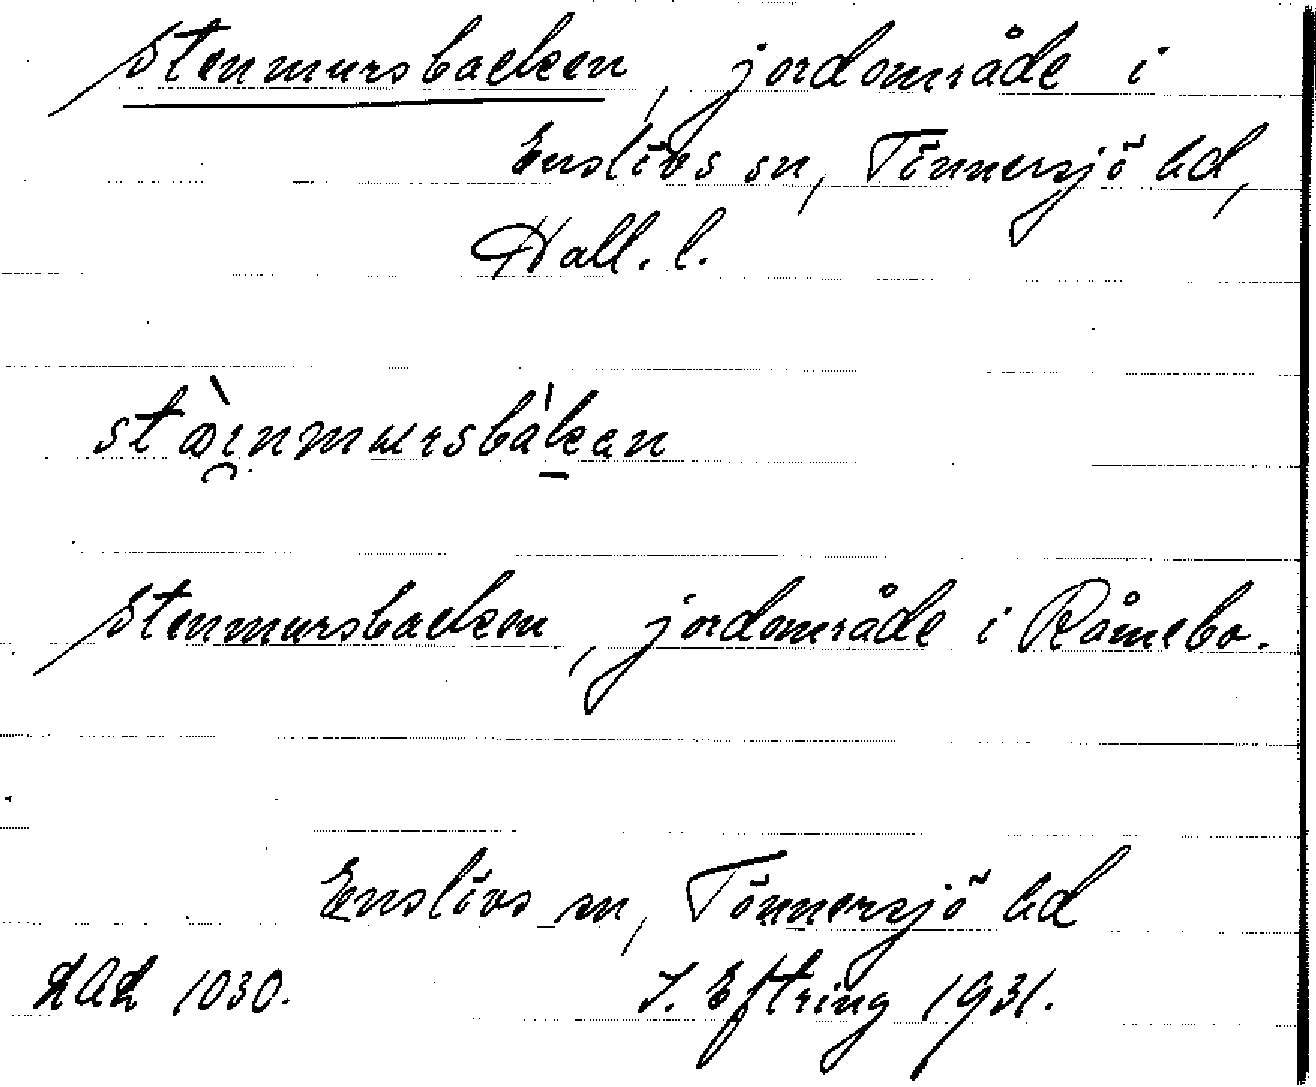 Stenmursbacken, jordområde i
Enslövs sn, Tönnersjö hd,
Hall. l.
stæ̀ɪnmursbàkan
Stenmursbacken, jordområde i Råmebo.
Enslövs sn, Tönnersjö hd
LAL 1030. J. Eftring 1931.